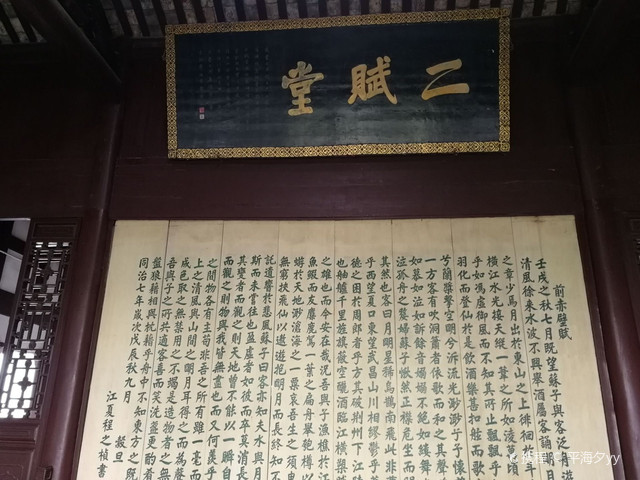 二賦堂
前赤壁賦
壬戌之秋七月既望蘇子與客泛舟遊
清風徐來水波不興舉酒屬客誦明月
之章少焉月出於東山之上徘徊
橫江水光接天縱一葦之所如淩萬頃
乎如馮虛御風而不知其所止飄飄乎
羽化而登仙於是飲酒樂甚扣舷而歌
兮蘭槳擊空明兮泝流光渺渺兮予懷
一方客有吹洞簫者依歌而和之其聲
如慕如泣如訴餘音嫋嫋不絕如縷舞
泣孤舟之嫠婦蘇子愀然正襟危坐而
其然也客曰月明星稀烏鵲南飛此非
乎西望夏口東望武昌山川相繆鬱乎
德之困於周郎者乎方其破荊州下江陵
也舳艫千里旌旗蔽空釃酒臨江橫槊
之雄也而今安在哉況吾與子漁樵於江
魚鰕而友麋鹿駕一葉之扁舟舉匏樽以
蜉蝣於天地渺滄海之一粟哀吾生之須臾
無窮挾飛仙以遨遊抱明月而長終知不
託遺響於悲風蘇子曰客亦知夫水與月
斯而未嘗往也盈虛者如彼而卒莫消長
其變者而觀之則天地曾不能以一瞬自
而觀之則物與我皆無盡也而又何羨乎
之間物各有主苟非吾之所有雖一毫而
上之清風與山間之明月耳得之而為聲
成色取之無禁用之不竭是造物者之無
吾與子之所共適客喜而笑洗盞更酌肴
盤狼藉相與枕藉乎舟中不知東方之既
同治七年歲次戊辰秋九月 穀旦
江夏程之楨書
携程 @平海夕yy